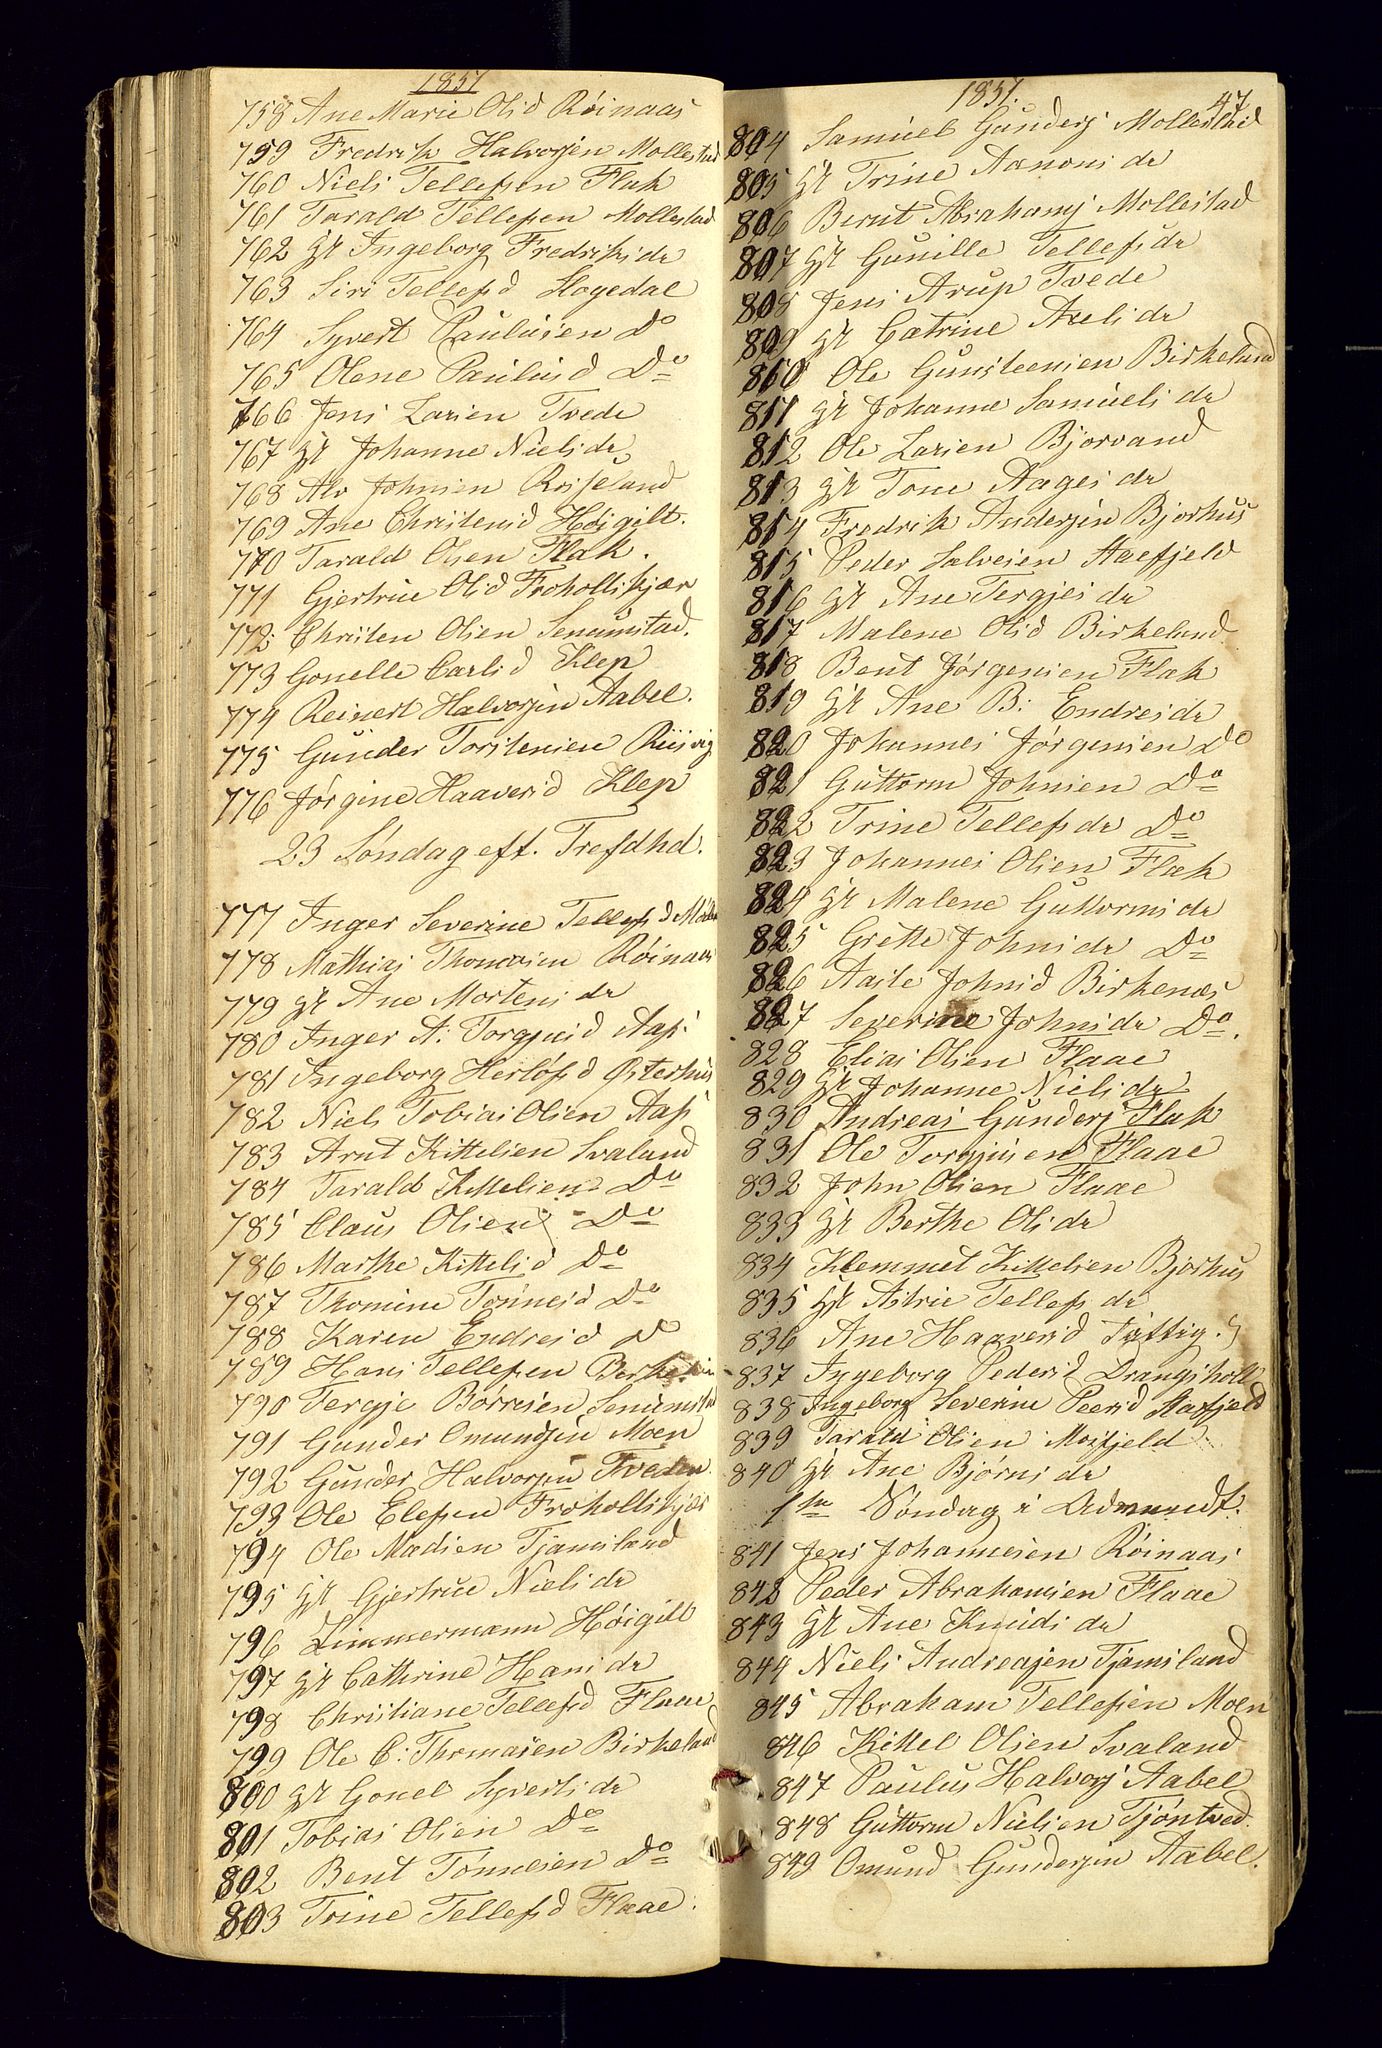 1857
758 Ane Marie Olsd Røinaas
759 Fredrik Halvorsen Mollestad
760 Niels Tellefsen Flak
761 Tarald Tellefsen Mollestad
762 Gt Ingeborg Fredriksdr
763 Siri Tellefsd Hagedal
764 Syvert Paulusen Do
765 Olene Paulusd Do
766 Jens Larsen Tvede
767 Gt Johanne Nielsdr
768 Alv Johnsen Risseland
769 Ane Christensd Høigilt.
770 Tarald Olsen Flak.
771 Gjertrue Olsd Froholtskjær
772 Christen Olsen Senumstad.
773 Gonelle Carlsd Klep
774 Reinert Halvorsen Aabel.
775 Gunder Torstensen Riisvig
776 Jørgine Haaversd Klep
23 Søndag eft. Trefdhd.
777 Inger Severine Tellefsd
778 Mathias Thomasen Røinaas
779 Gt Ane Mortensdr
780 Inger A: Torgjusd Aas
781 Ingeborg Herlofsd Østerhus
782 Niels Tobias Olsen Aas
783 Arnt Kittelsen Svaland
784 Tarald Kittelsen Do
785 Claus Olsen Do
786 Marthe Kittelsd Do
787 Thomine Tønnesd Do
788 Karen Endresd Do
789 Hans Tellefsen
790 Tergje Børresen Senumstad
791 Gunder Omundsen Moen
792 Gunder Halvorsen Tveden
793 Ole Elefsen Froholtskjær
794 Ole Madsen Tjamsland
795 Gt Gjertrue Nielsdr
796 Zimmermann Høigilt
797 Gt Cathrine Hansdr
798 Christiane Tellefsd Flaae
799 Ole C: Thomasen Birkeland
800 Gt Gonel Syvertsdr
801 Tobias Olsen Do
802 Bent Tønnesen Do
803 Trine Tellefsd Flaae.
1857. 47
804 Samuel Gunders Mollestad
805 Gt Trine Aanonsdr
806 Bernt Abrahams Mollestad
807 Gt Gunille Tellefsdr
808 Jens Arup Tvede
809 Gt Catrine Axelsdr
810 Ole Gunsteensen Birkeland
811 Gt Johanne Samuelsdr
812 Ole Larsen Bjorvand
813 Gt Tone Aagesdr
814 Fredrik Andersen Bjorhus
815 Peder Salvesen
816 Gt Ane Tergjesdr
817 Malene Olsd Birkeland
818 Bent Jørgensen Flak
819 Gt Ane B: Endresdr
820 Johannes Jørgensen Do
821 Guttorm Johnsen Do
822 Trine Tellefsdr Do
823 Johannes Olsen Flak
824 Gt Malene Guttormsdr
825 Grethe Johnsdr Do
826 Aaste Johnsd Birkenæs
827 Severine Johnsdr Do.
828 Elias Olsen Flaae
829 Gt Johanne Nielsdr
830 Andreas Gunders Flak
831 Ole Torgjusen Flaae
832 John Olsen Flaae
833 Gt Berthe Olsdr
834 Klemmet Kittelsen Bjorhus
835 Gt Astrie Tellefsdr
836 Ane Haaversd
837 Ingeborg Pedersd Drangsholt
838 Ingeborg Severine Peersd
839 Tarald Olsen Mosfjeld
840 Gt Ane Bjørnsdr
1ste Søndag i Advendt.
841 Jens Johannesen Røinaas
842 Peder Abrahamsen Flaae
843 Gt Ane Knudsdr
844 Niels Andreasen Tjamsland
845 Abraham Tellefsen Moen
846 Kittel Olsen Svaland
847 Paulus Halvors Aabel
848 Guttorm Nielsen Tjøntved.
849 Omund Gundersen Aabel.